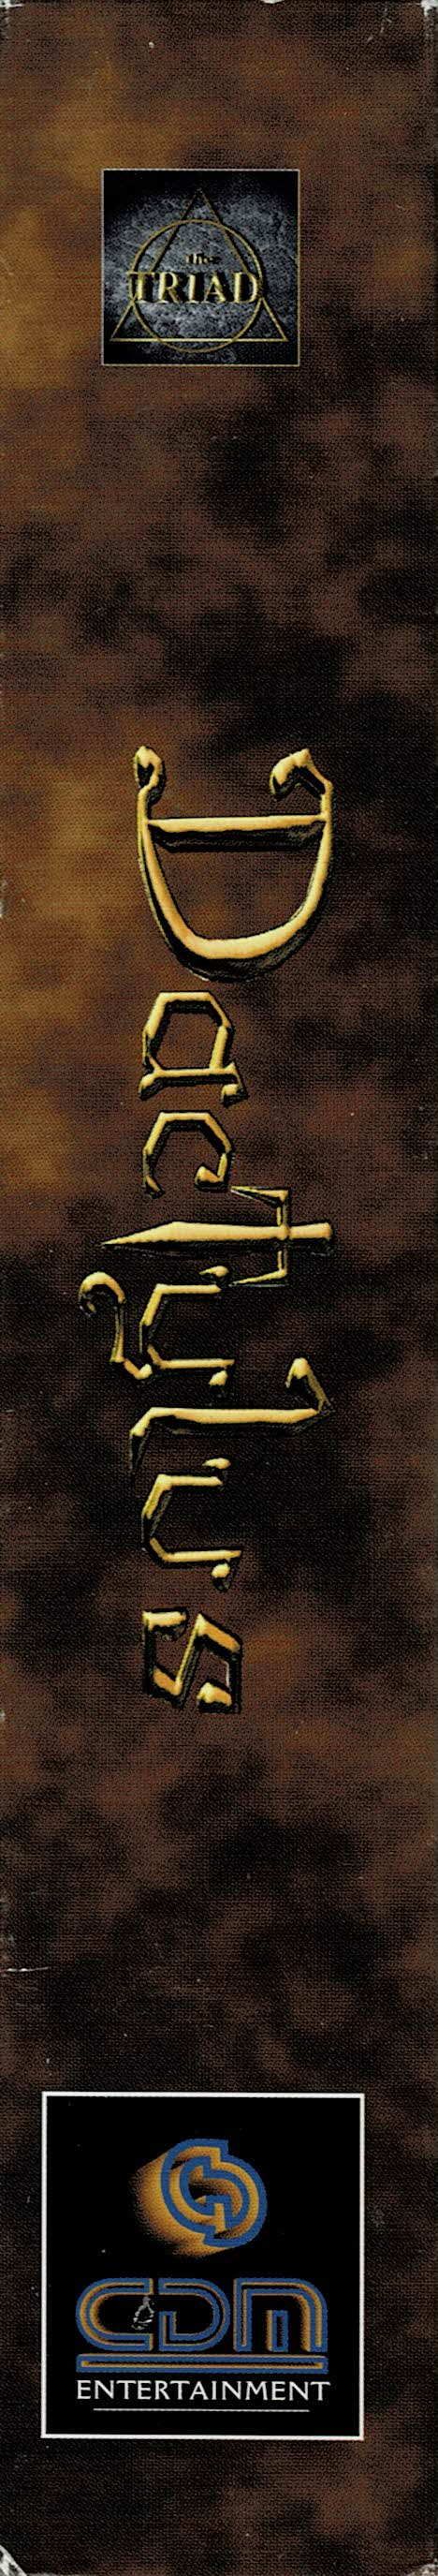 the
TRIAD
Dactylus
CDM
ENTERTAINMENT